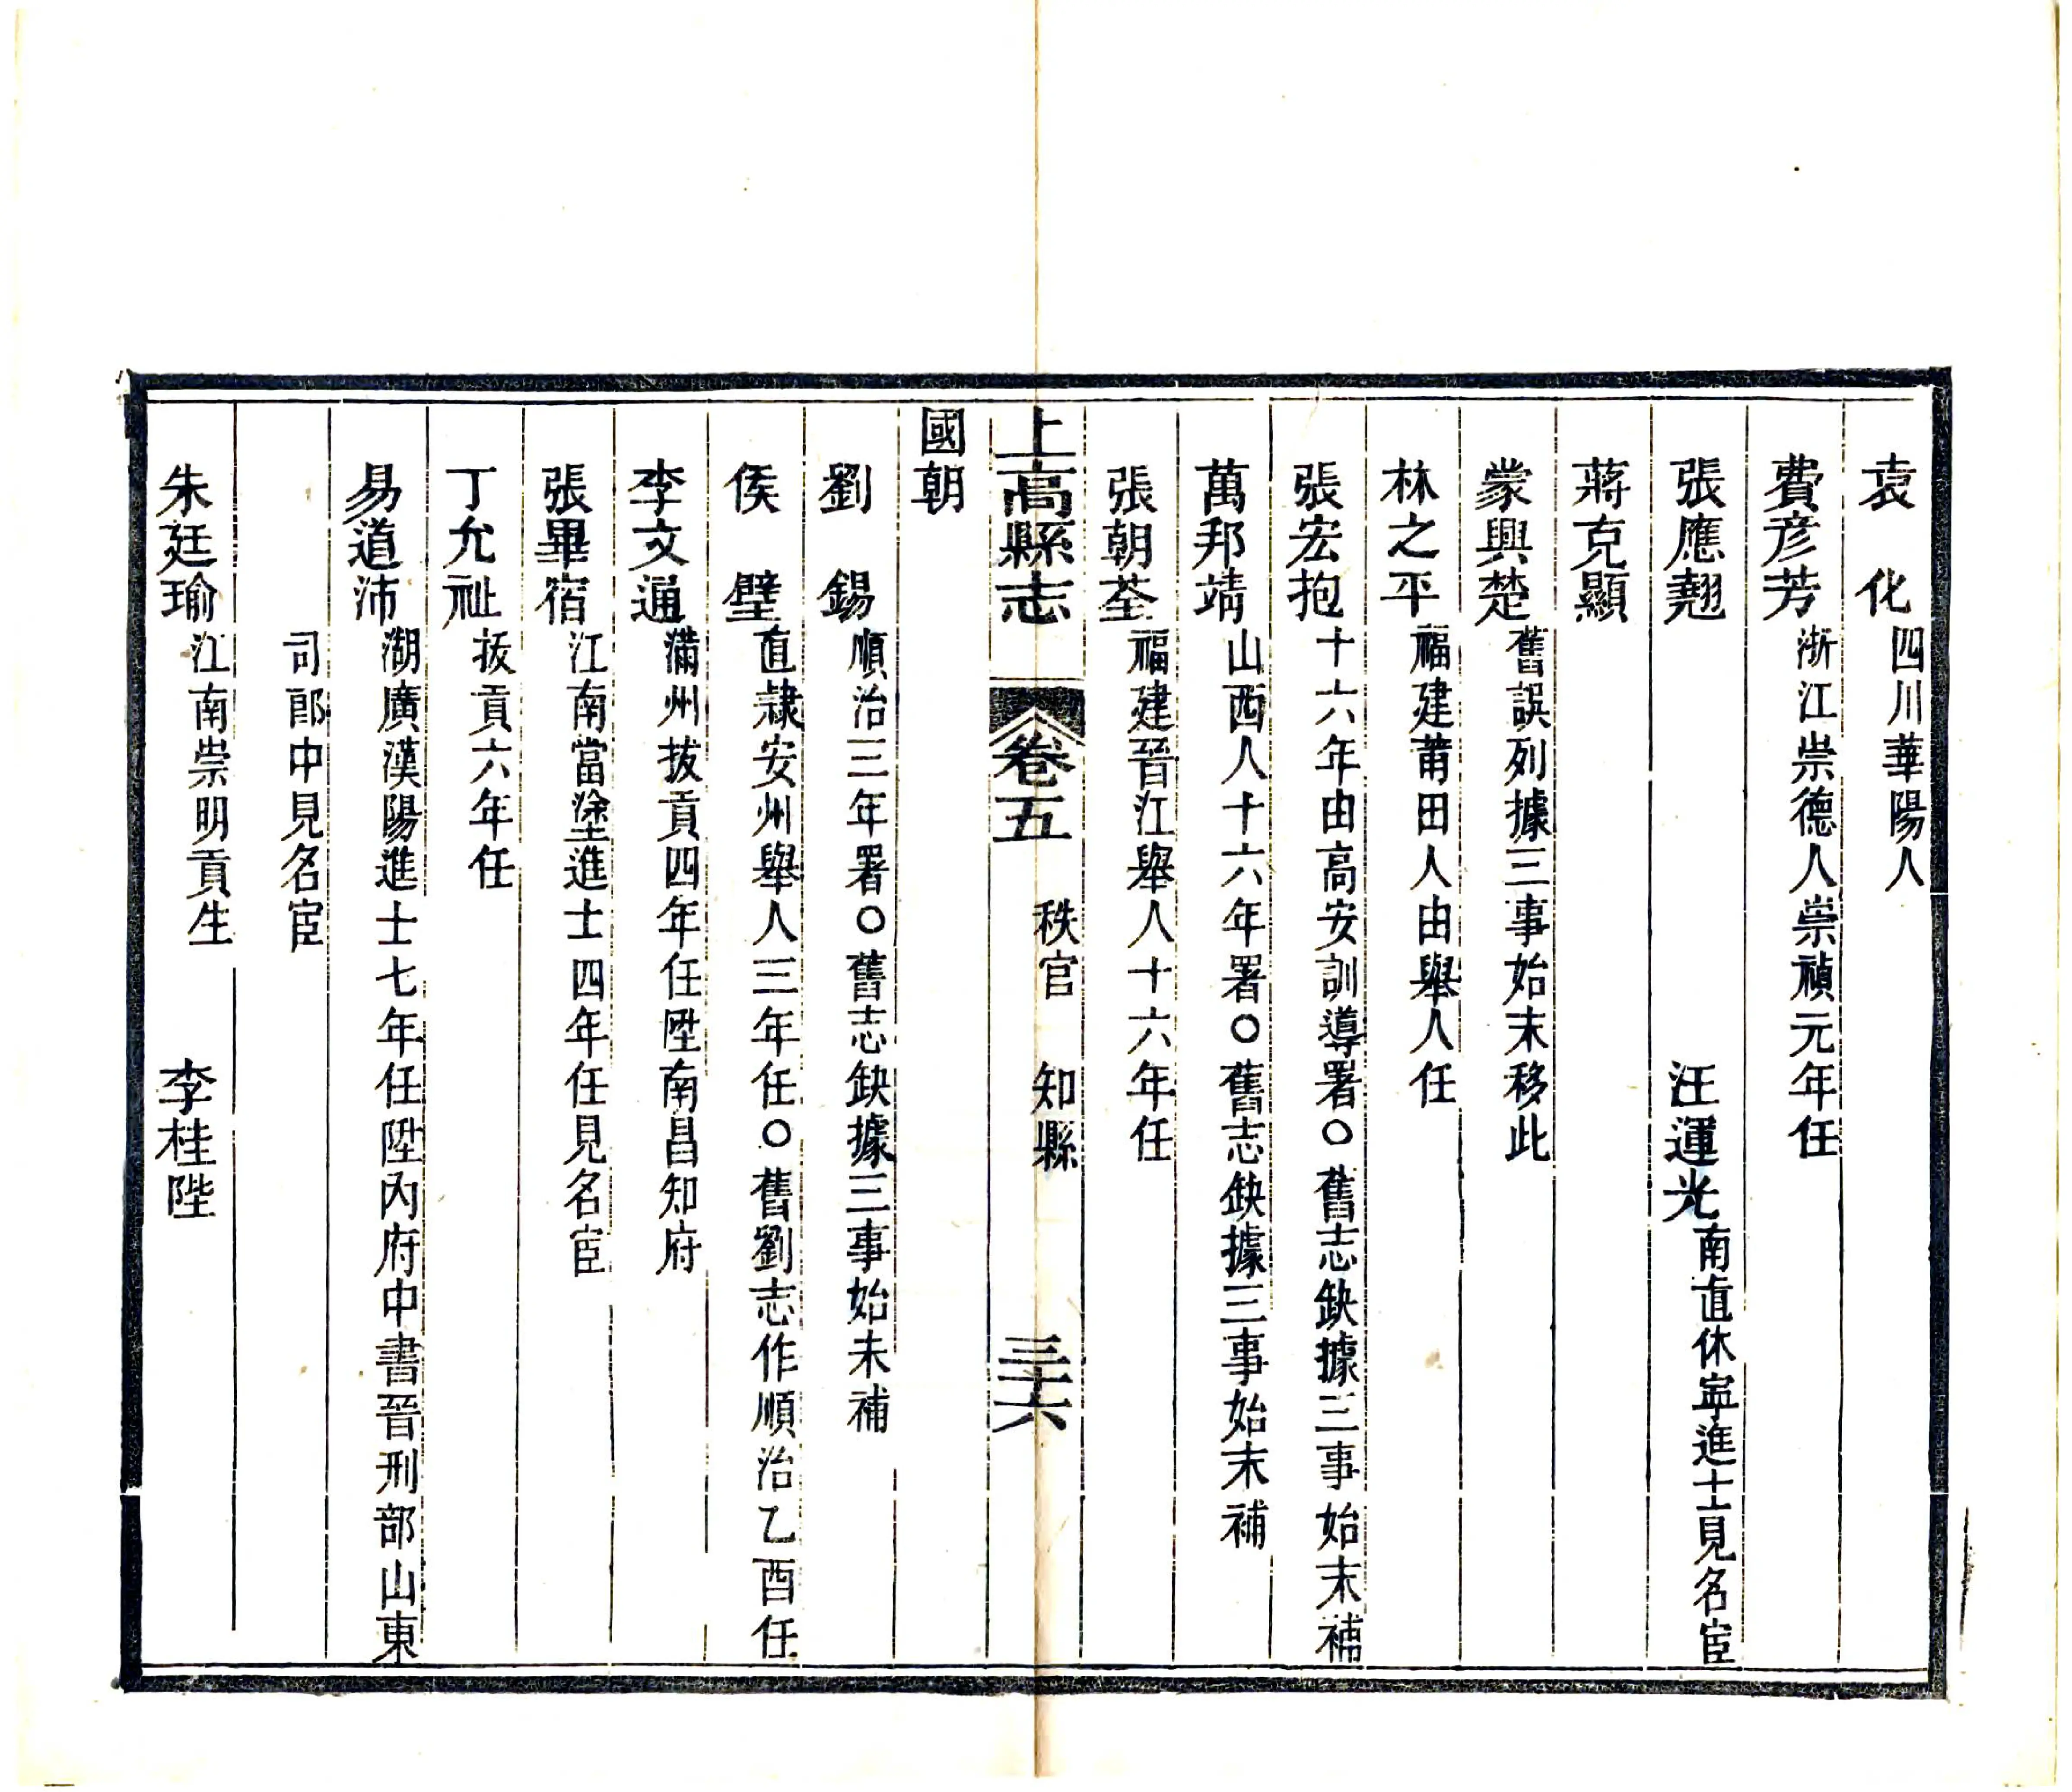 袁　化四川華陽人
費彦芳浙江崇德人崇禎元年任
張應翹　汪運光南直休寧進士見名宦
蔣克顯
蒙興楚舊誤列據三事始末移此
林之平福建莆田人由舉人任
張宏抱十六年由高安訓導署○舊志缺據三事始末補
萬邦靖山西人十六年署○舊志缺據三事始末補
張朝荃福建晉江舉人十六年任
上高縣志　卷五　秩官　知縣　三十六
國朝
劉　錫順治三年署○舊志缺據三事始末補
侯　璧直隸安州舉人三年任○舊劉志作順治乙酉任
李文通滿州拔貢四年任陞南昌知府
張畢宿江南當塗進士四年任見名宦
丁允祉拔貢六年任
易道沛湖廣漢陽進士七年任陞內府中書晉刑部山東
司郎中見名宦
朱廷瑜江南崇明貢生　李桂陛